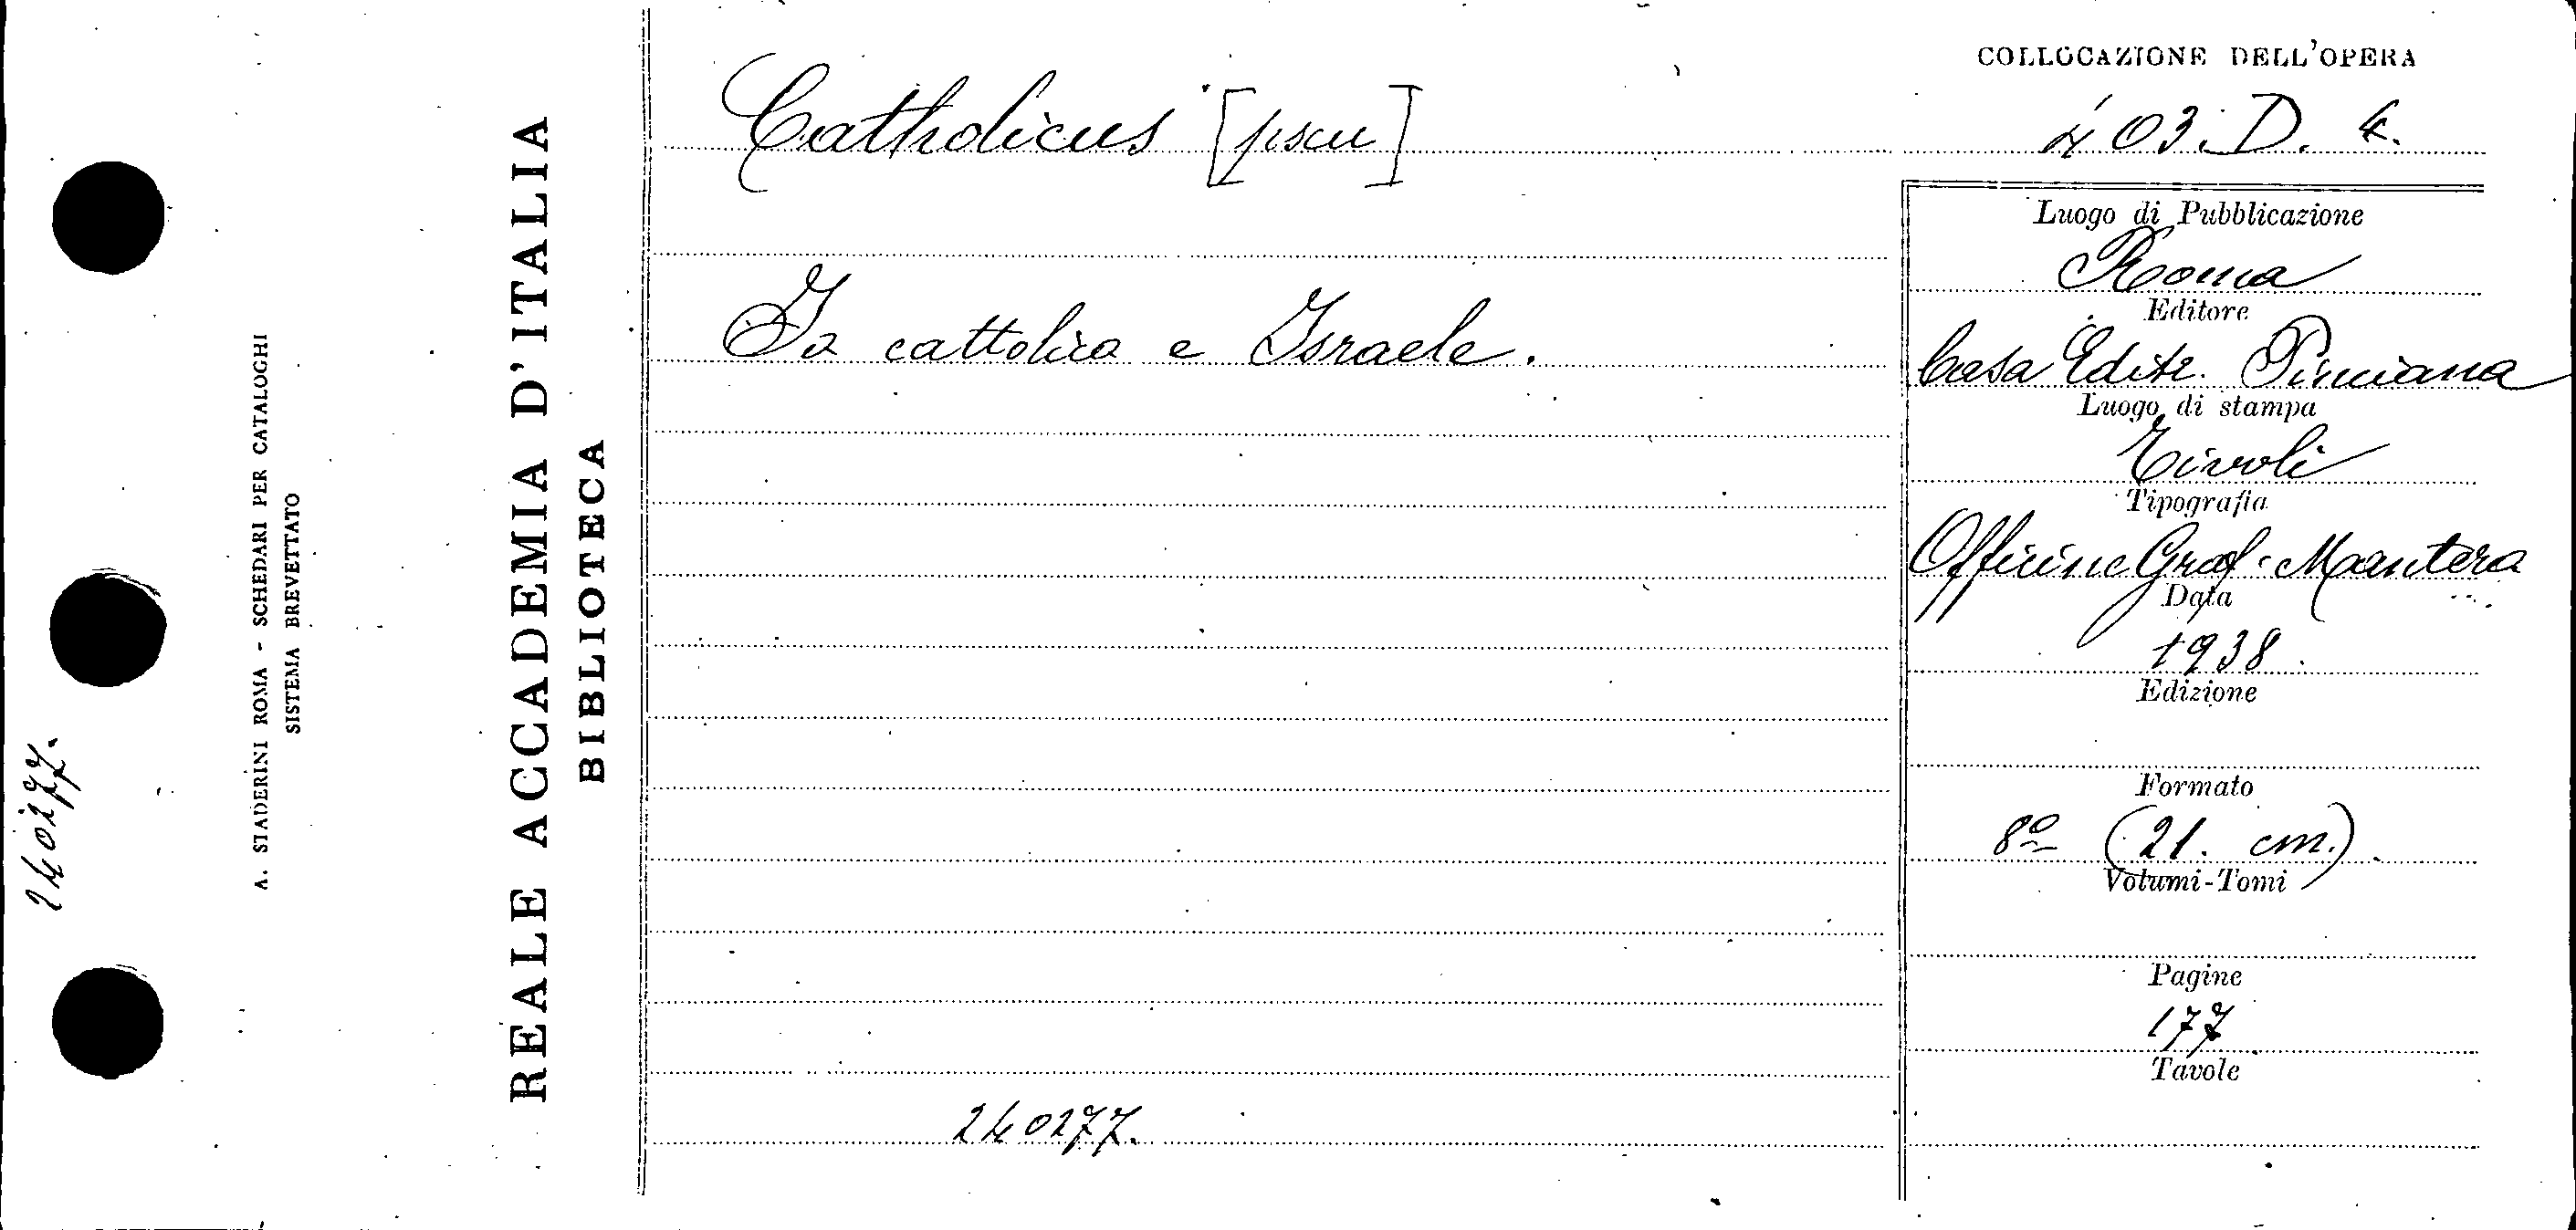 COLLOCAZIONE DELL'OPERA
Catholicus [pseu]
403. D. 4.
Io cattolico e Israele.
Luogo di Pubblicazione
Roma
Editore
Casa Editr. Pinciana
Luogo di stampa
Tivoli
Tipografia
Officine Graf. Mantera
Data
1938
Edizione
Formato
8º (21. cm.)
Volumi-Tomi
Pagine
177
Tavole
240277.
REALE ACCADEMIA D'ITALIA
BIBLIOTECA
A. STADERINI ROMA - SCHEDARI PER CATALOGHI
SISTEMA BREVETTATO
240277.